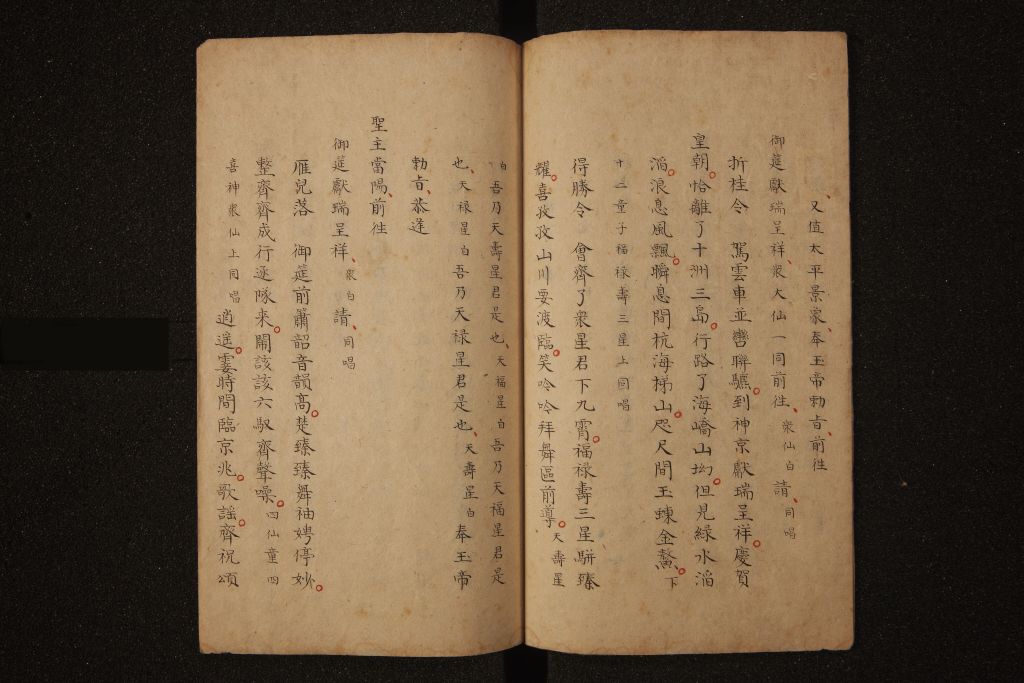 又值太平景象奉玉帝勅旨前徃
御筵獻瑞呈祥衆大仙一同前徃衆仙白請同唱
折桂令　駕雲車並轡聯驪到神京獻瑞呈祥慶賀
皇朝恰離了十洲三島行路了海嶠山坳但見綠水滔
滔浪息風飄瞬息間杭海梯山咫尺間玉蝀金鰲下
十二童子福禄壽三星上同唱
得勝令　會齊了衆星君下九霄福禄壽三星駢臻
耀喜孜孜山川要渡臨笑吟吟拜舞區前導天壽星
白吾乃天壽星君是也天福星白吾乃天福星君是
也天禄星白吾乃天禄星君是也天壽星白奉玉帝
勅旨恭逢
聖主當陽前徃
御筵獻瑞呈祥衆白請同唱
雁兒落　御筵前簫韶音韻高楚臻臻舞袖娉停妙
整齊齊成行逐隊來鬧該該六馭齊聲噪四仙童四
喜神衆仙上同唱逍遥霎時間臨京兆歌謡齊祝頌